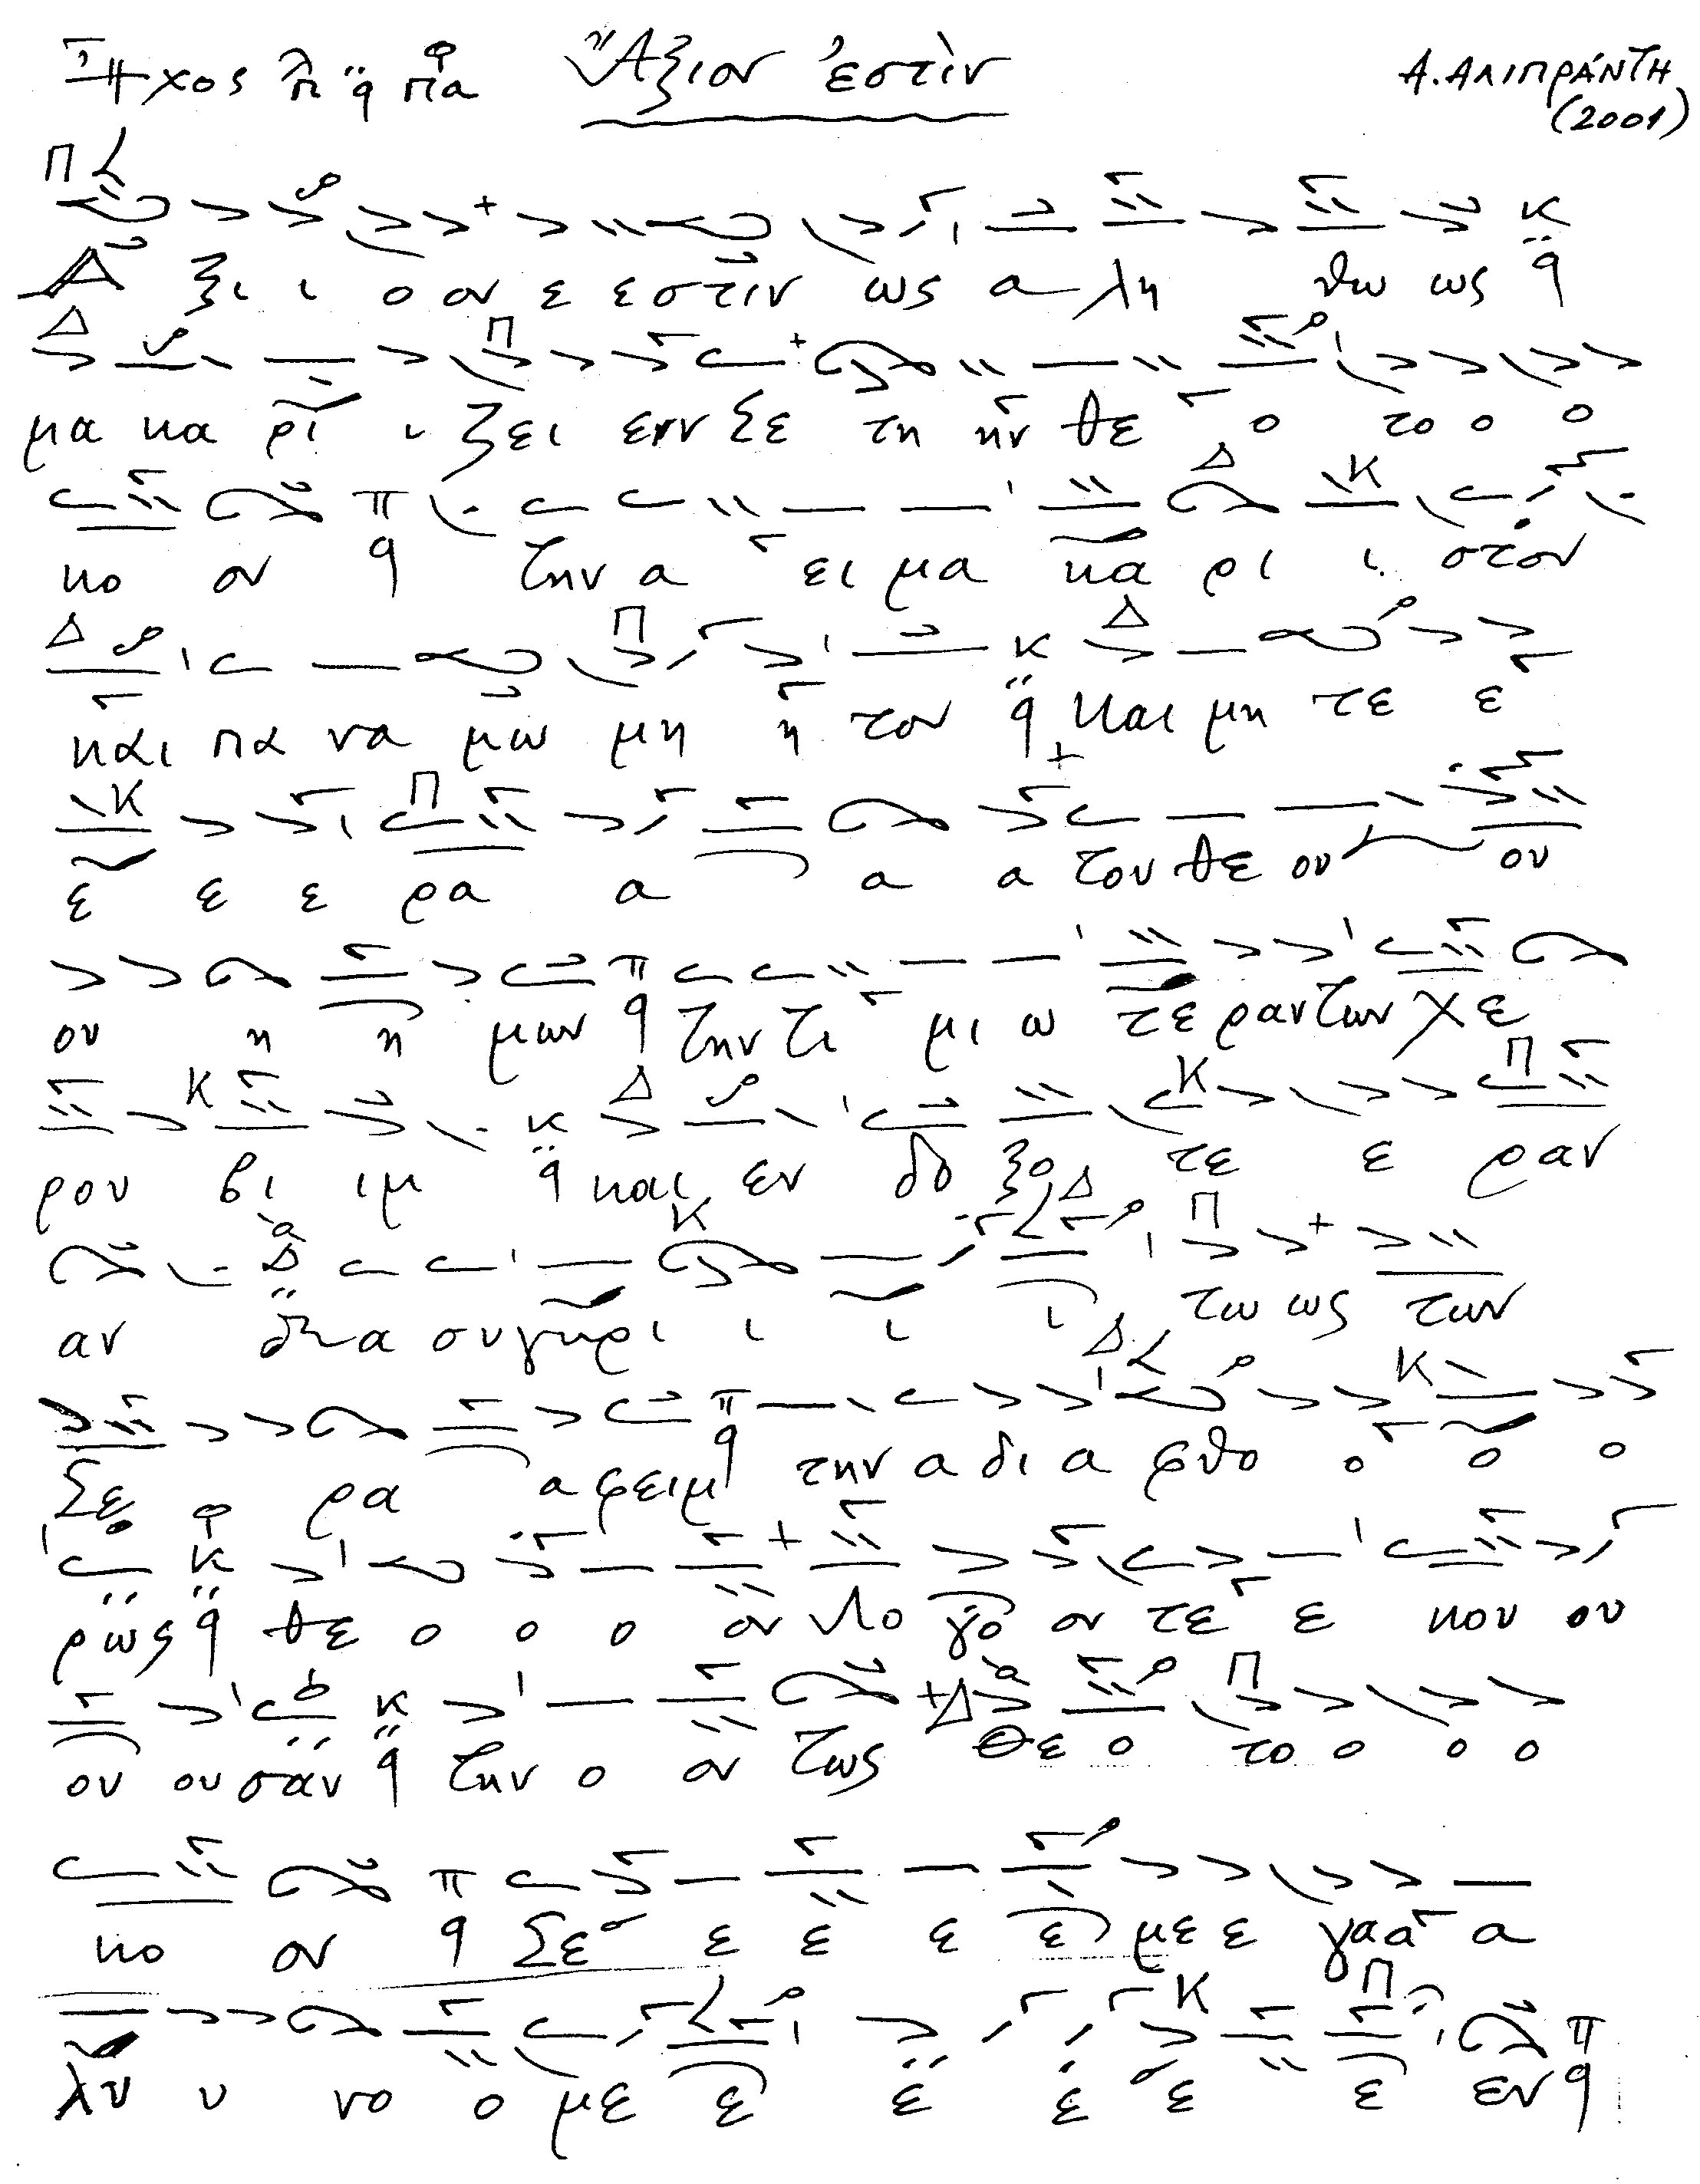 Ἦχος λ π ᾳ πα Ἄξιον ἐστὶν Α. ΑΛΙΠΡΆΝΤΗ
(2001)
Α ξι ι ο ον ε εστίν ως α λη θω ως
μα κα ρι ι ζει ειν Σε τη ην θε ο το ο ο
κο ον την α ει μα κα ρι ι στον
και πα να μω μη η τον και μη τε ε
ε ε ε ρα α α α του θε ου ου
ου η η μων την τι μι ω τε ραν των χε
ρου βι ιμ και εν δο ξο τε ε ραν
αν α συγκρι ι ι ι τω ως των
Σε ρα α φειμ την α δι α φθο ο ο ο
ρως θε ο ο ο ον Λο γο ον τε ε κου ου
ου ου σαν την ο ον τως Θε ο το ο ο ο
κο ον Σε ε ε ε ε με ε γα α α
λυ υ νο ο με ε ε ε ε ε εν